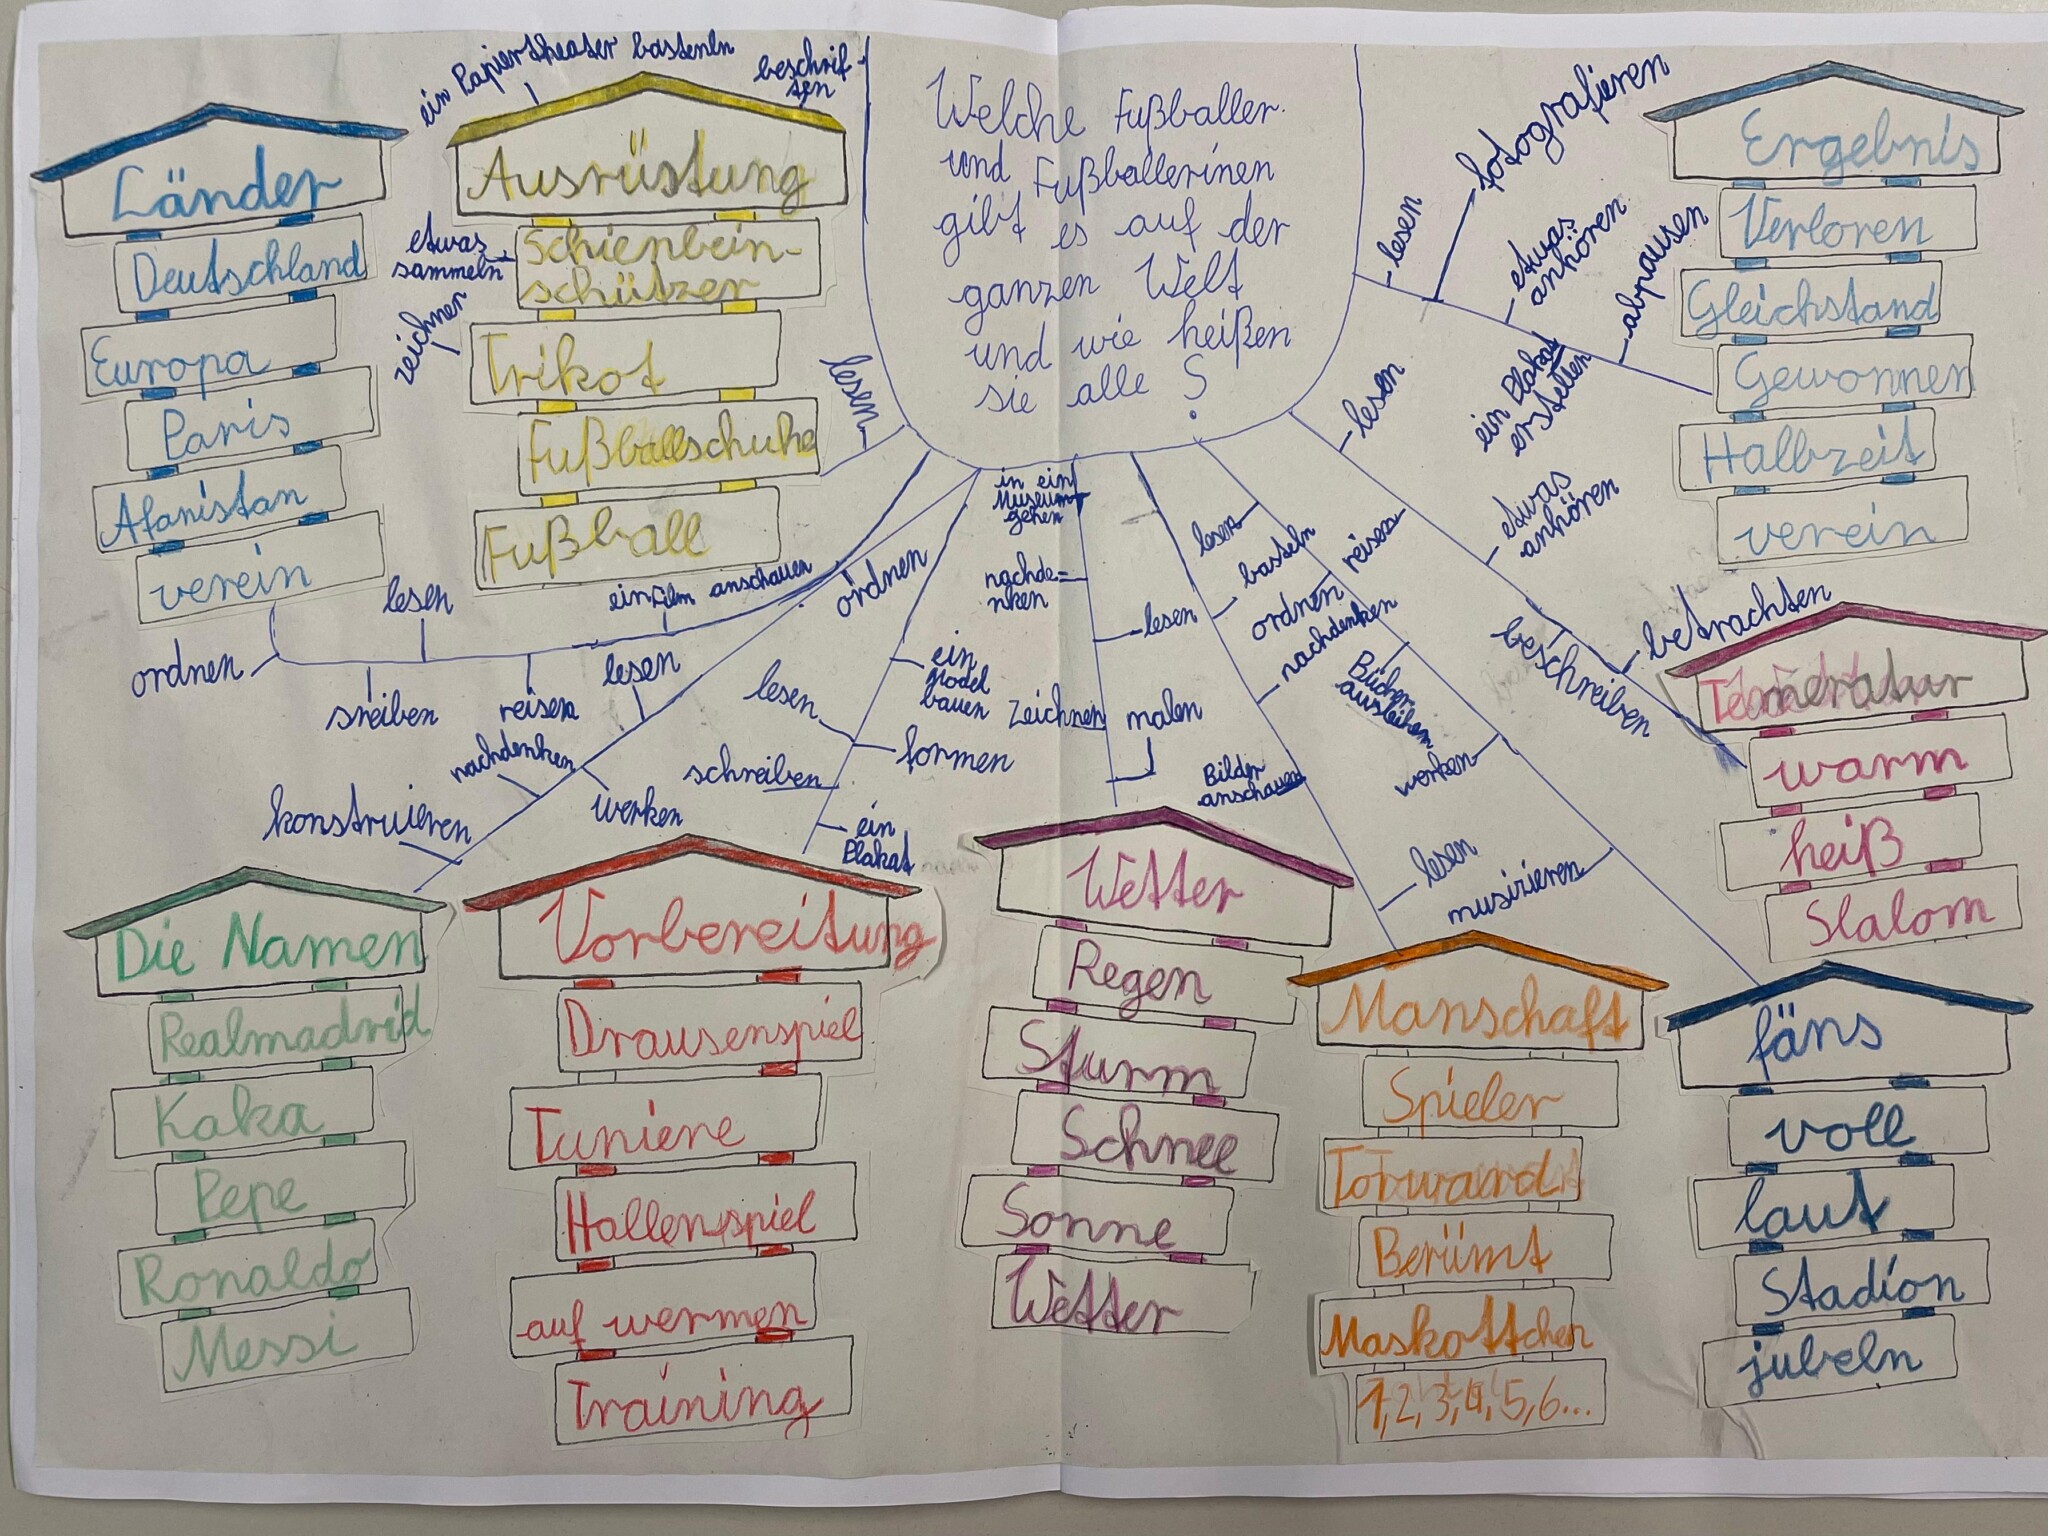 Welche Fußballer
und Fußballerinen
gibt es auf der
ganzen Welt
und wie heißen
sie alle ?
Länder
Deutschland
Europa
Paris
Afanistan
verein
ordnen
sreiben
lesen
reisen
ein Film anschauen
ein Papiertheater bastenln
beschrif-
ten
Ausrüstung
Schienbein-
schützer
Trikot
Fußballschuhe
Fußball
etwas
sammeln
zeichnen
lesen
Die Namen
Realmadrid
Kaka
Pepe
Ronaldo
Messi
konstruieren
nachdenken
werken
lesen
ordnen
Vorbereitung
Drausenspiel
Tuniere
Hallenspiel
auf wermen
Training
ein
Model
bauen
lesen
formen
schreiben
ein
Plakat
Wetter
Regen
Sturm
Schnee
Sonne
Wetter
in ein
Museum
gehen
nachde=
nken
lesen
Zeichnen
malen
Manschaft
Spieler
Torward
Berümt
Maskottchen
1,2,3,4,5,6...
lesen
basteln
ordnen
nachdenken
Bilder
anschauen
lesen
fäns
voll
laut
Stadion
jubeln
reisen
Bücher
ausleihen
werken
musizieren
Temeratur
warm
heiß
Slalom
lesen
etwas
anhören
beschreiben
betrachten
Ergebnis
Verloren
Gleichstand
Gewonnen
Halbzeit
verein
lesen
fotografieren
etwas
anhören
abpausen
ein Plakat
erstellen